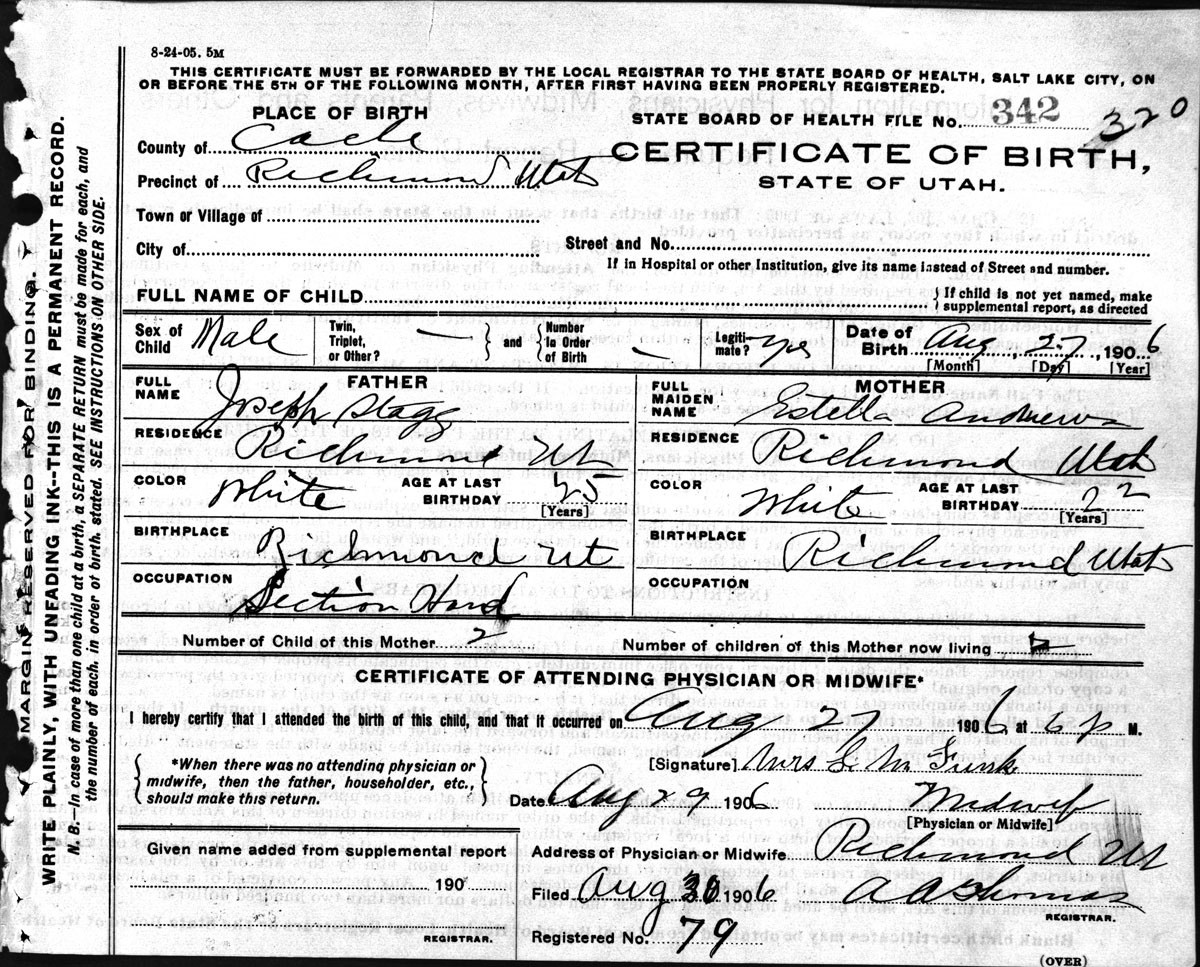 8-24-05. 5M
THIS CERTIFICATE MUST BE FORWARDED BY THE LOCAL REGISTRAR TO THE STATE BOARD OF HEALTH, SALT LAKE CITY, ON
OR BEFORE THE 5TH OF THE FOLLOWING MONTH, AFTER FIRST HAVING BEEN PROPERLY REGISTERED.
PLACE OF BIRTH
STATE BOARD OF HEALTH FILE No. 342 320
County of Cache
CERTIFICATE OF BIRTH,
Precinct of Richmond Utah
STATE OF UTAH.
Town or Village of
City of
Street and No.
If in Hospital or other Institution, give its name instead of Street and number.
FULL NAME OF CHILD } If child is not yet named, make supplemental report, as directed
Sex of Child Male
Twin, Triplet, or Other? — } and { Number in Order of Birth —
Legitimate? yes
Date of Birth Aug, 27, 1906
[Month] [Day] [Year]
FATHER
FULL NAME Joseph Stagg
RESIDENCE Richmond Ut
COLOR White
AGE AT LAST BIRTHDAY 25
[Years]
BIRTHPLACE Richmond Ut
OCCUPATION Section Hand
MOTHER
FULL MAIDEN NAME Estella Andrews
RESIDENCE Richmond Utah
COLOR White
AGE AT LAST BIRTHDAY 22
[Years]
BIRTHPLACE Richmond Utah
OCCUPATION
Number of Child of this Mother 2
Number of children of this Mother now living 2
CERTIFICATE OF ATTENDING PHYSICIAN OR MIDWIFE*
I hereby certify that I attended the birth of this child, and that it occurred on Aug 27 1906 at 6 p M.
{ *When there was no attending physician or
midwife, then the father, householder, etc.,
should make this return. }
[Signature] Mrs L. M Funk
Date Aug 29 1906
Midwife
[Physician or Midwife]
Given name added from supplemental report
190
REGISTRAR.
Address of Physician or Midwife Richmond Ut
Filed Aug 30 1906 A A Thomas
REGISTRAR.
Registered No. 79
(OVER)
MARGIN RESERVED FOR BINDING.
WRITE PLAINLY, WITH UNFADING INK--THIS IS A PERMANENT RECORD.
N. B.—In case of more than one child at a birth, a SEPARATE RETURN must be made for each, and
the number of each, in order of birth, stated. SEE INSTRUCTIONS ON OTHER SIDE.